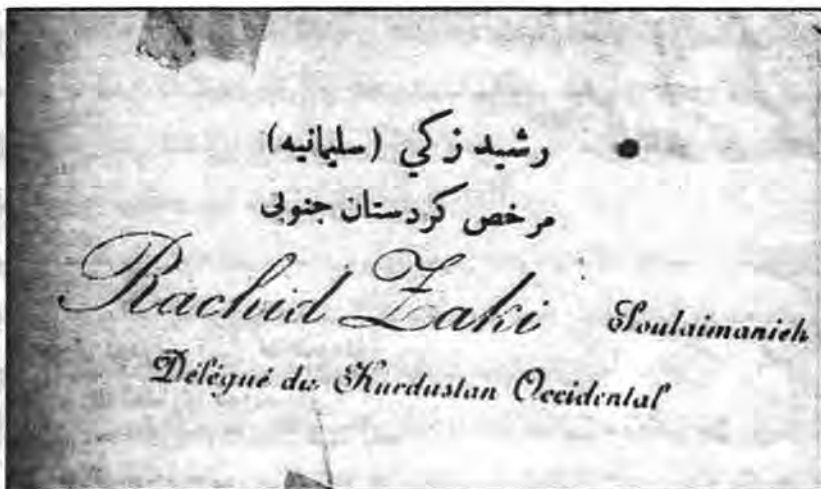 رشيد زكي (سليمانيه)
مرخص كردستان جنوبى
Rachid Zaki Soulaimanieh
Délégué du Kurdustan Occidental